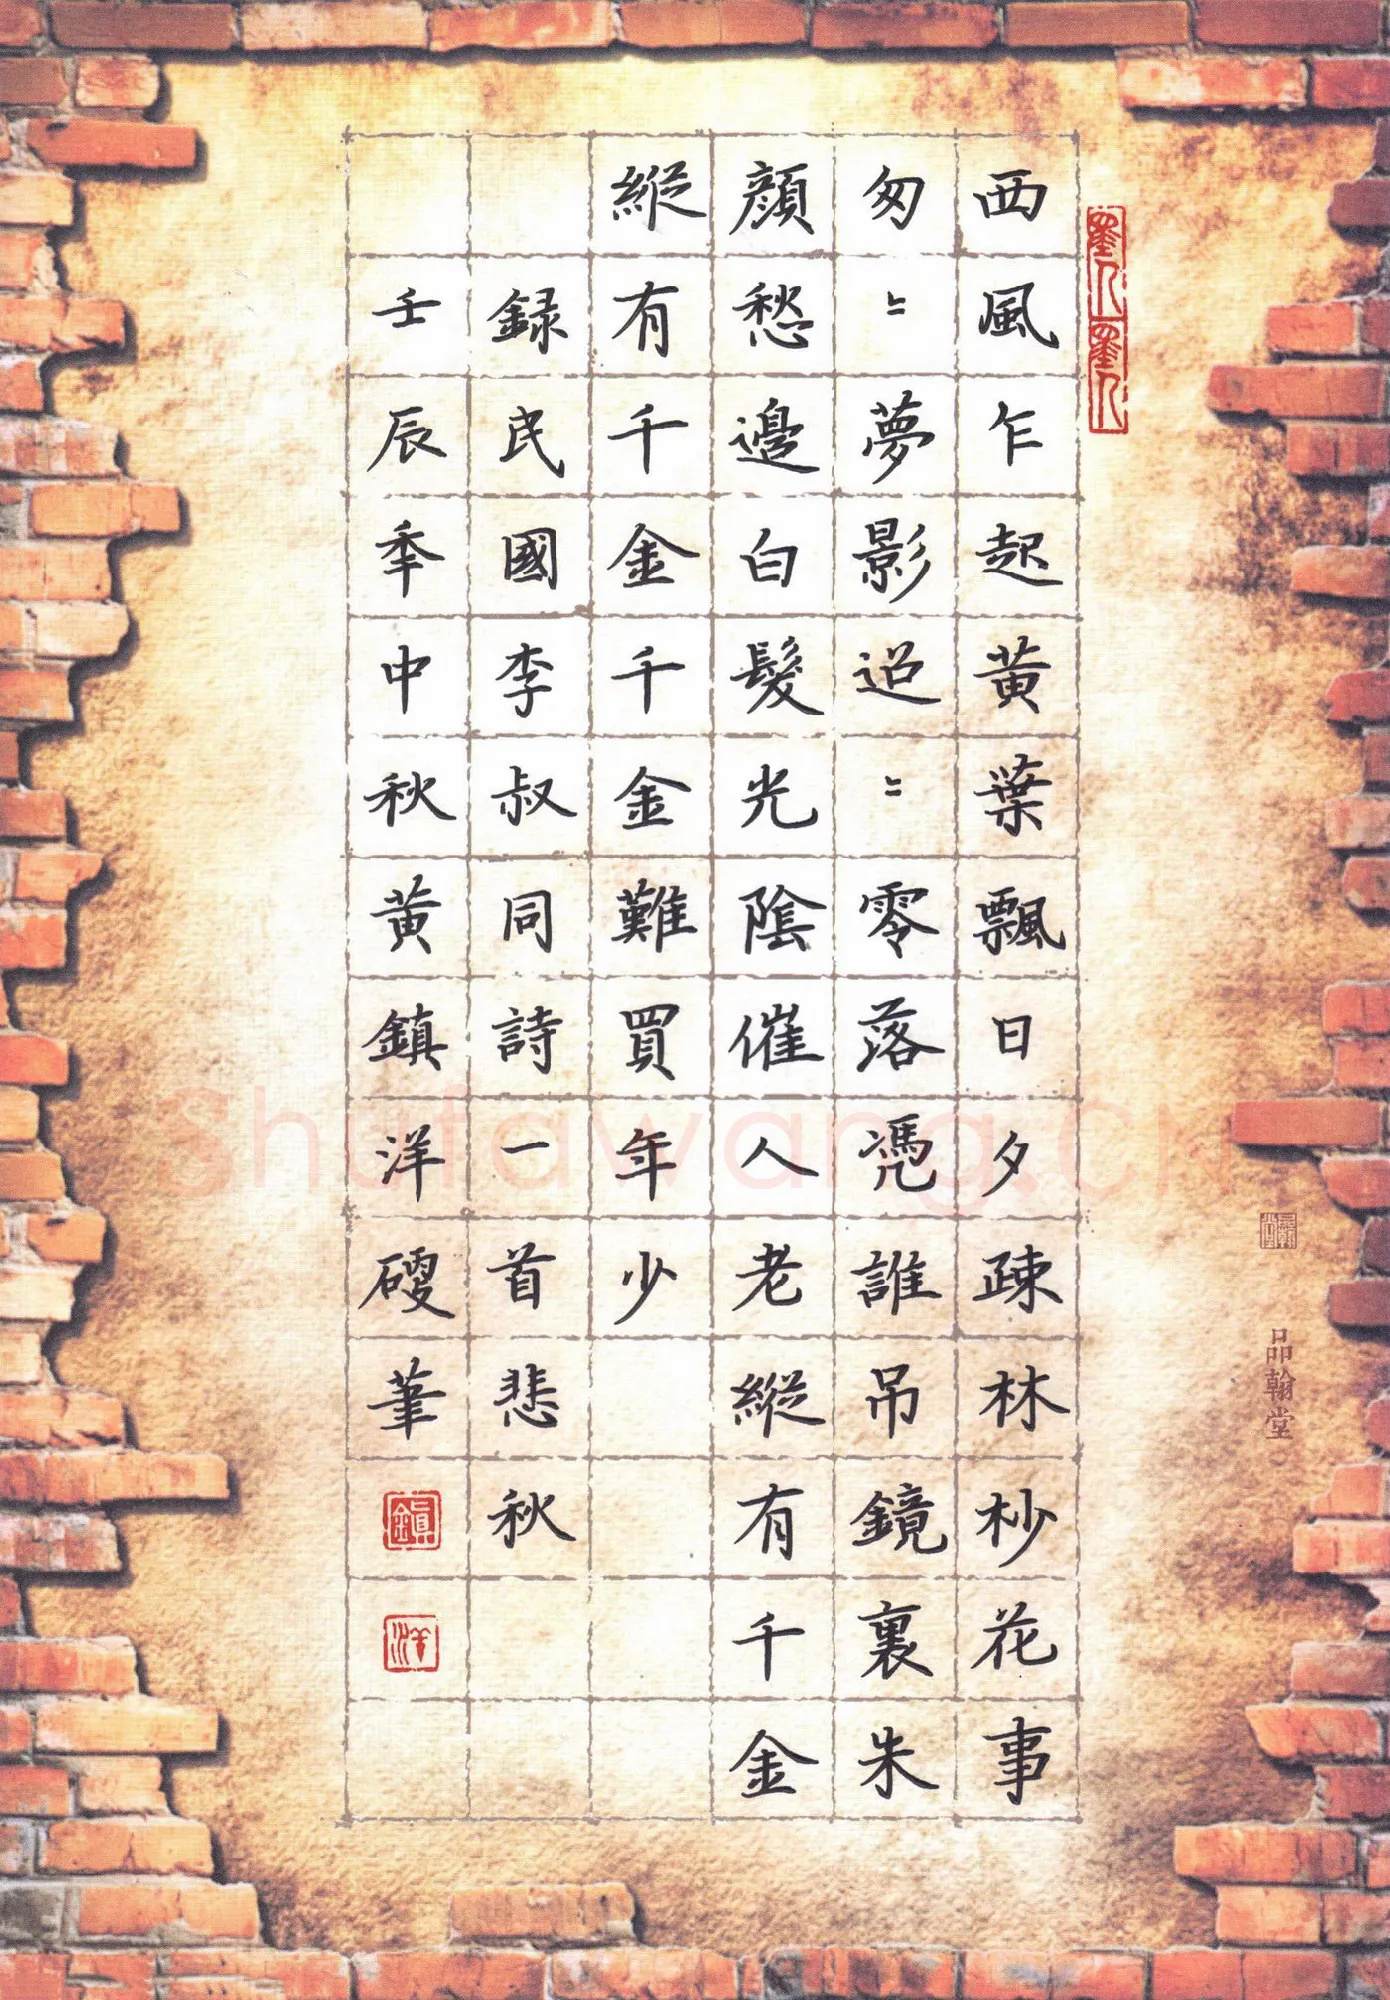 西風乍起黃葉飄日夕疎林杪花事
匆〻夢影迢〻零落凴誰吊鏡裏朱
顔愁邊白髮光陰催人老縱有千金
縱有千金千金難買年少
録民國李叔同詩一首悲秋
壬辰秊中秋黃鎮洋硬筆
鎮
洋
品翰堂
Shufawang.CN